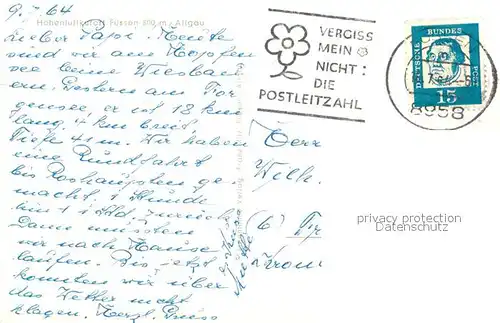 9.7.64
Höhenluftkurort Füssen 800 m Allgäu
Lieber Papi. Heute
sind wir am Hopfen
see
Gestern am
gensee er ist 8 km
lang, 4 km breit,
Tiefe 41 m. Wir haben
eine Rundfahrt
bis Roshaupten ge-
macht, 1 Stunde
hin 1 Std. zurück.
Dann mussten
wir nach Hause
laufen. Bis jetzt
konnten wir über
das Wetter nicht
klagen. Herzl. Gruss
VERGISS
MEIN
NICHT:
DIE
POSTLEITZAHL
DEUTSCHE BUNDESPOST
15
8958
Herr
Wilh.
(6)
privacy protection
Datenschutz